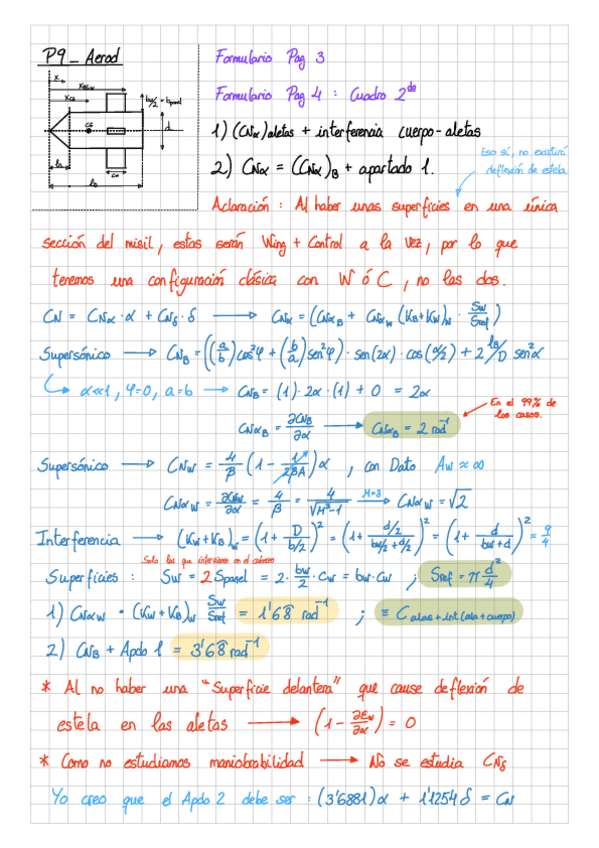 P9_Aerod
Formulario Pag 3
Formulario Pag 4 : Cuadro 2do
1) (CNα)aletas + interferencia cuerpo-aletas
2) CNα = (CNα)B + apartado 1.
Eso sí, no existirá
deflexión de estela
Aclaración : Al haber unas superficies en una única
sección del misil, estas serán Wing + Control a la vez, por lo que
tenemos una configuración clásica con W ó C, no las dos.
CN = CNα·α + CNδ·δ → CNα = (CNαB + CNαW (KB+KW)W · Sw/Sref)
Supersónico → CNB = ((a/b)cos²φ + (b/a)sen²φ) · sen(2α) · cos(α/2) + 2 lB/D sen²α
α<<1, φ=0, a=b → CNB = (1)·2α·(1) + 0 = 2α
En el 99% de
los casos.
CNαB = ∂CNB/∂α → CNαB = 2 rad⁻¹
Supersónico → CNW = 4/β (1 - 1/2βA)α , con Dato Aw ≈ ∞
CNαW = ∂CNW/∂α = 4/β = 4/√M²-1 M=3 → CNαW = √2
Interferencia → (KW+KB)W = (1 + D/b/2)² = (1 + d/2/bw/2+d/2)² = (1 + d/bw+d)² = 9/4
Solo las que intervienen en el
Superficies : Sw = 2 Spanel = 2· bw/2 · cw = bw·cw ; Sref = π d²/4
1) CNαW · (KW+KB)W Sw/Sref = 1'68 rad⁻¹ ; ≡ C alas + int (ala+cuerpo)
2) CNB + Apdo 1 = 3'68 rad⁻¹
* Al no haber una "Superficie delantera" que cause deflexión de
estela en las aletas → (1 - ∂εw/∂α) = 0
* Como no estudiamos maniobrabilidad → No se estudia CNδ
Yo creo que el Apdo 2 debe ser : (3'6881)α + 1'1254 δ = CN